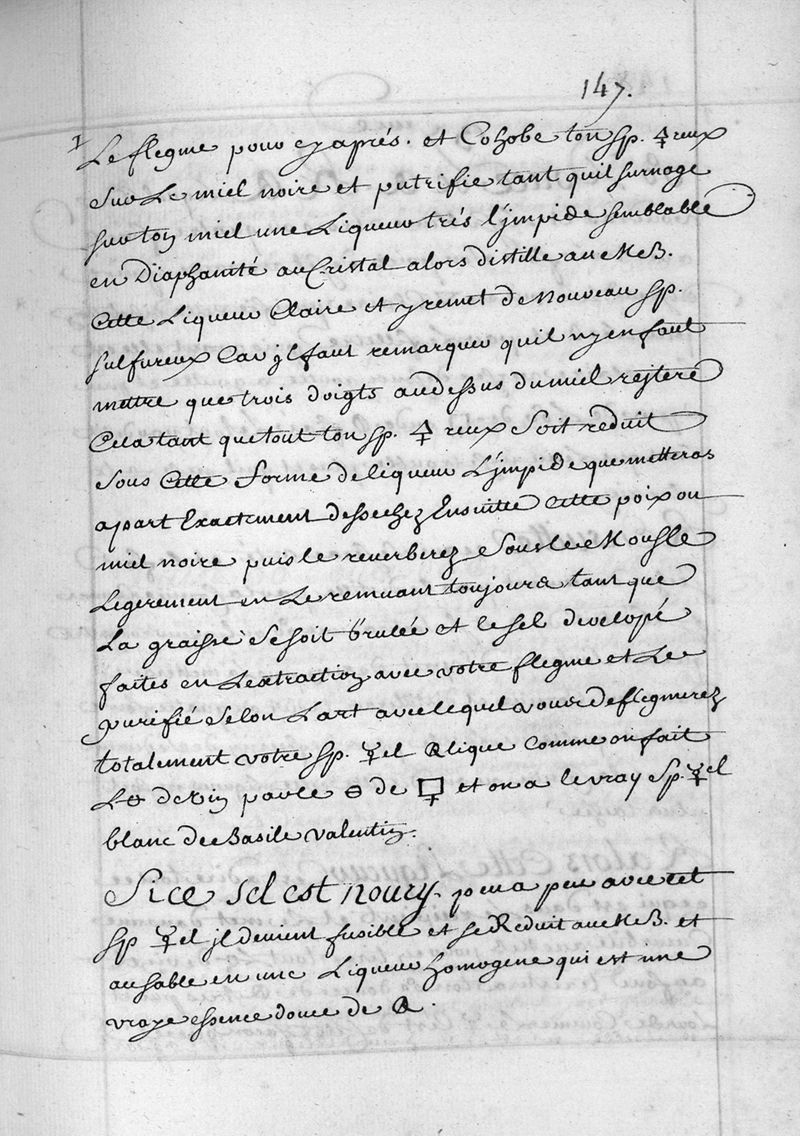 147.
Le flegme pour cy aprés. et Cohobe ton sp. 🜍 reux
sur Le miel noire et putrifie tant quil surnage
sur ton miel une Liqueur trés lijmpide semblable
en Diaphanité au Cristal alors distille au MB.
Cette Liqueur Claire et y remet de nouveau sp.
sulfureux Car jl faut remarquer quil ny en faut
mettre que trois doigts au dessus du miel rejtere
Cela tant que tout ton sp. 🜍 reux soit réduit
sous Cette forme de liqueur Lijmpide que metteras
a part Exactement dessechez Ensuitte Cette poix ou
miel noire puis le reverberez sous le Moufle
Legerement en Le remuant toujours tant que
La graisse se soit brulée et le sel developé
faites en Lextraction avec votre flegme et Le
purifié selon Lart avec lequel vous deflegmerez
totalement votre sp. ☿ el lique comme on fait
L de vin par le 🜔 de et on a le vray Sp. ☿ el
blanc de Basile valentin.
Si ce sel est noury. peu a peu avec cet
sp ☿ el jl devient fusible et se Reduit au MB. et
au sable en une Liqueur homogene qui est une
vraye essence douce de